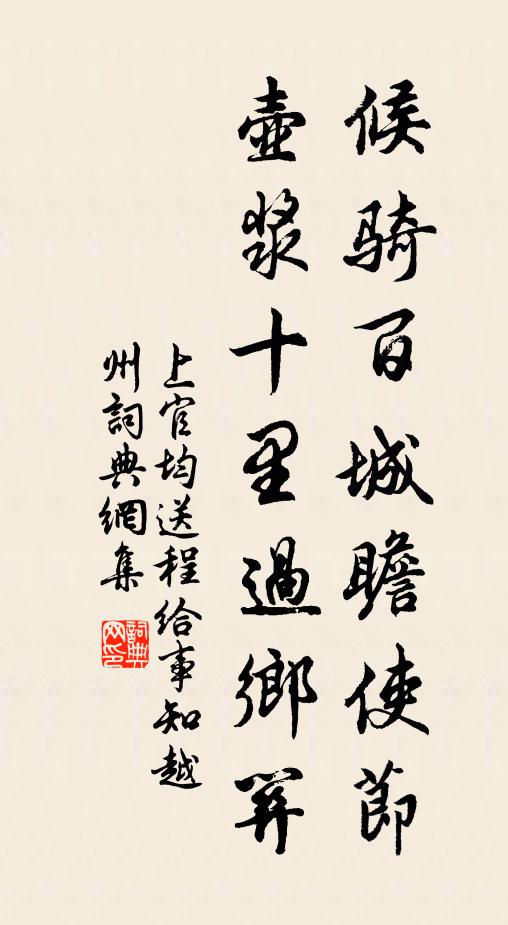 候騎百城瞻使節
壺漿十里過鄉關
上官均送程給事知越
州詞典網集
詞典網印